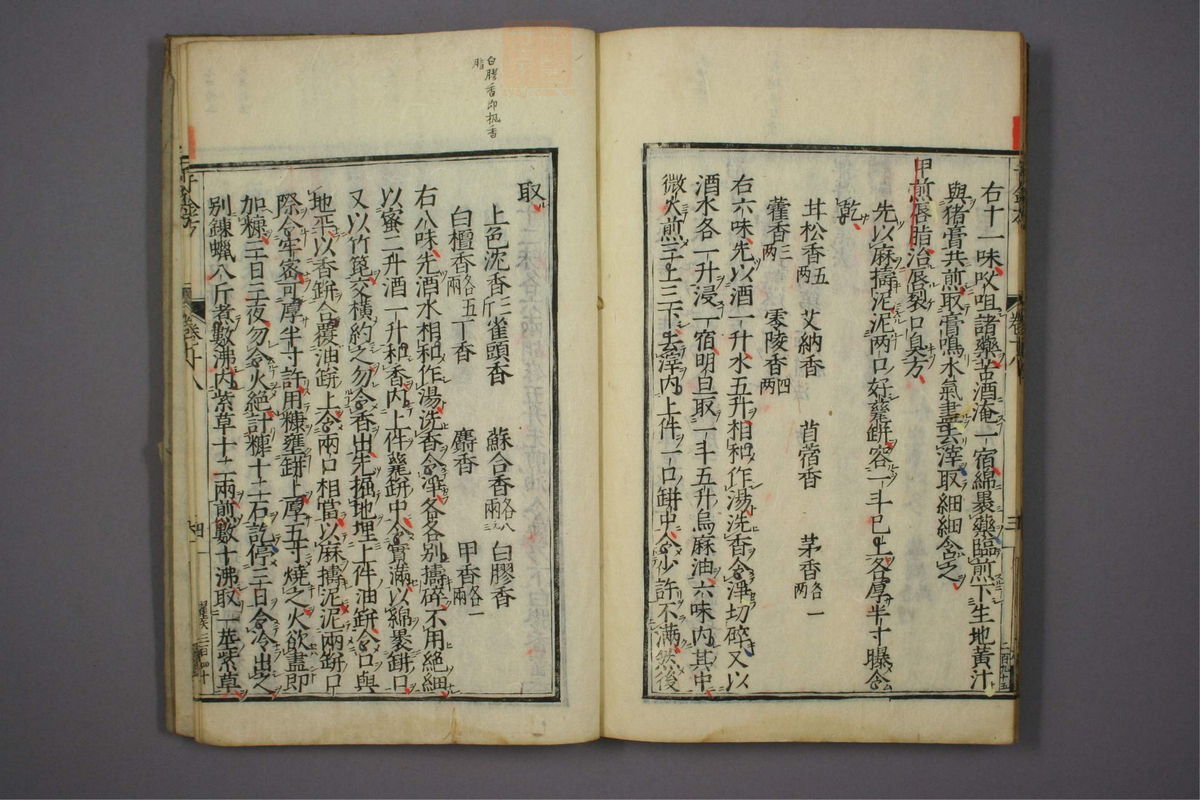 右十一味㕮咀諸藥苦酒淹一宿綿裹藥臨煎下生地黃汁
與猪膏共煎取膏鳴水氣盡去滓取細細含之
甲煎唇脂治唇裂口臭方
先以麻擣泥泥兩口好瓷缾容一斗已上各厚半寸曝令
乾
甘松香五兩 艾納香 苜蓿香 茅香各一兩
藿香三兩 零陵香四兩
右六味先以酒一升水五升相和作湯洗香令淨切碎又以
酒水各一升浸一宿明旦取一斗五升烏麻油六味內其中
微火煎三上三下去滓內上件一口缾中令少許不滿然後
取
上色沈香三斤 雀頭香 蘇合香各八兩 白膠香
白檀香各五兩 丁香 麝香 甲香各一兩
右八味先酒水相和作湯洗香令淨各各別擣碎不用絕細
以蜜二升酒一升和香內上件瓷缾中令實滿以綿裹缾口
又以竹篦交橫約之勿令香出先掘地埋上件油缾令口與
地平以香缾合覆油缾上令兩口相當以麻擣泥泥兩缾口
際令牢密可厚半寸許用糠壅缾上厚五寸燒之火欲盡即
加糠三日三夜勿令火絕計糠十二石訖停三日令冷出之
別鍊蠟八斤煮數沸內紫草十二兩煎數十沸取一莖紫草
白膠香即楓香
脂
卷十八
三
四